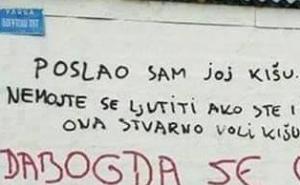 POSLAO SAM JOJ KIŠU.
NEMOJTE SE LJUTITI AKO STE I
ONA STVARNO VOLI KIŠU
DABOGDA SE